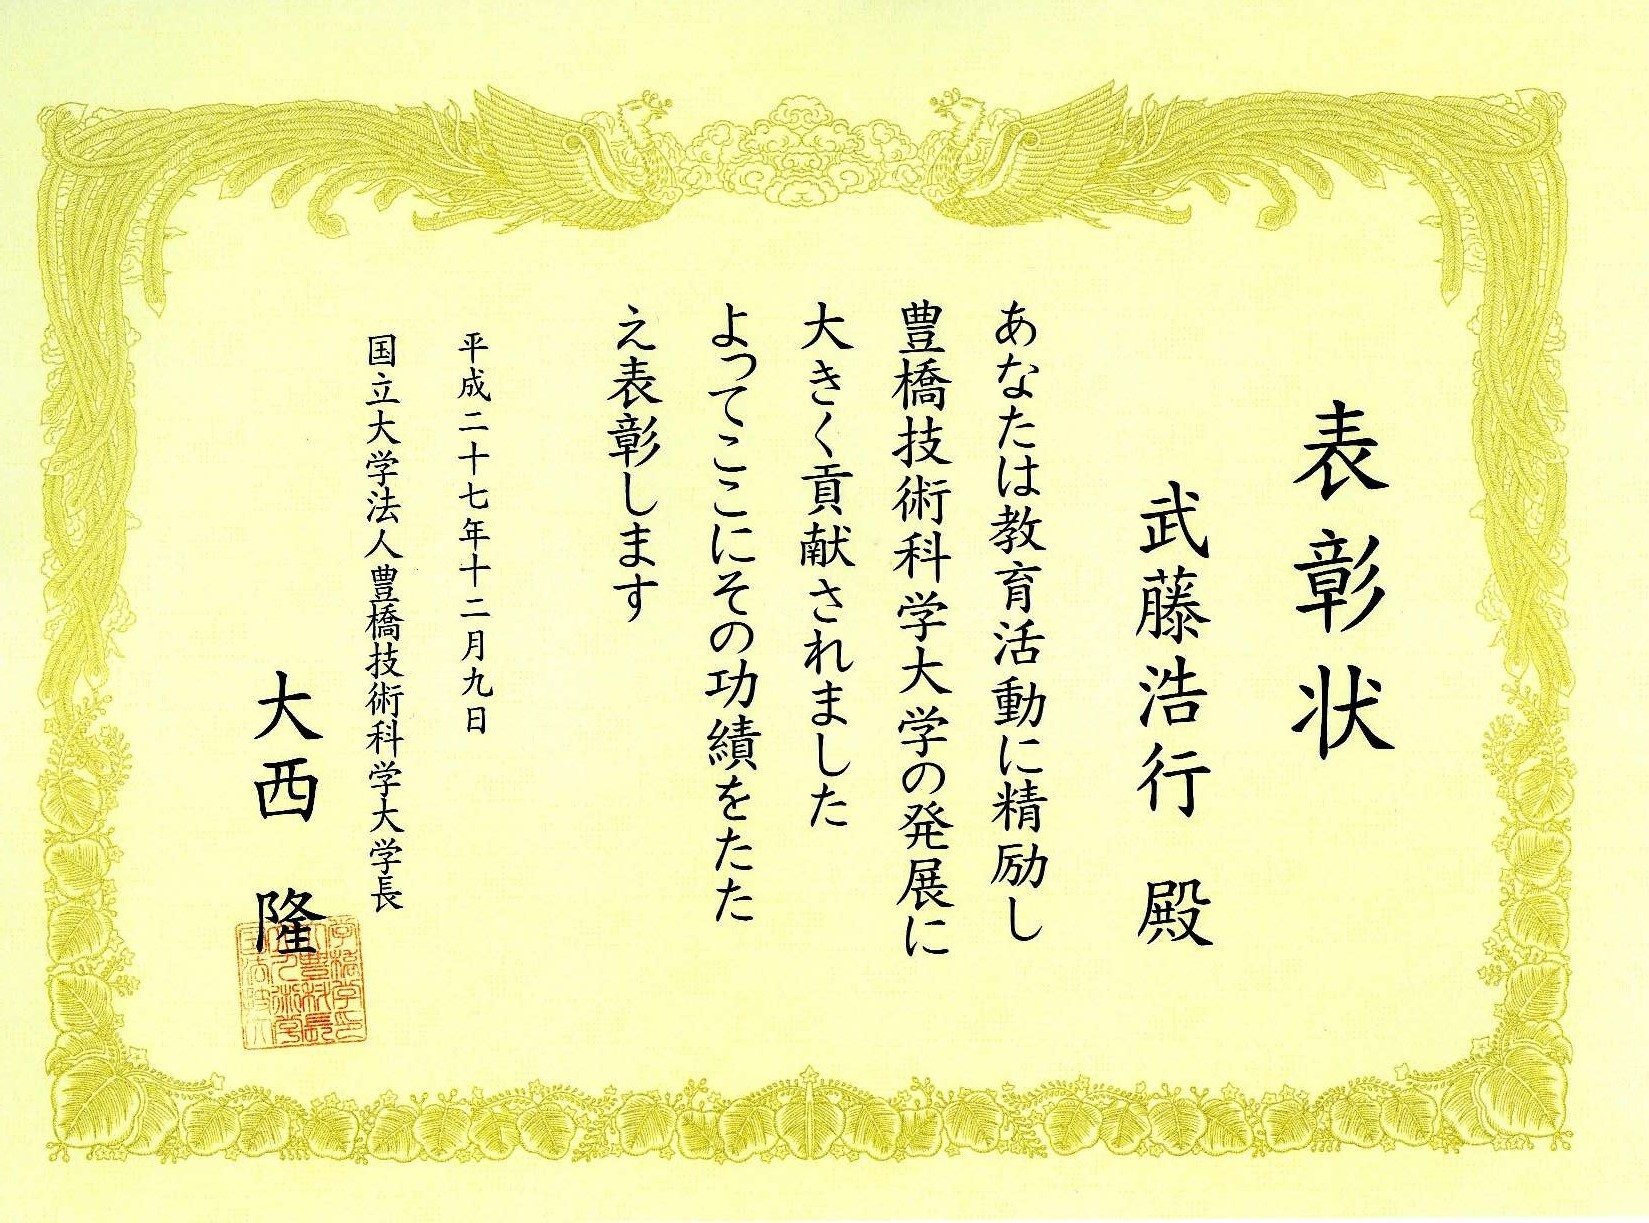 表彰状
武藤浩行 殿
あなたは教育活動に精励し
豊橋技術科学大学の発展に
大きく貢献されました
よってここにその功績をたた
え表彰します
平成二十七年十二月九日
国立大学法人豊橋技術科学大学長
大西 隆